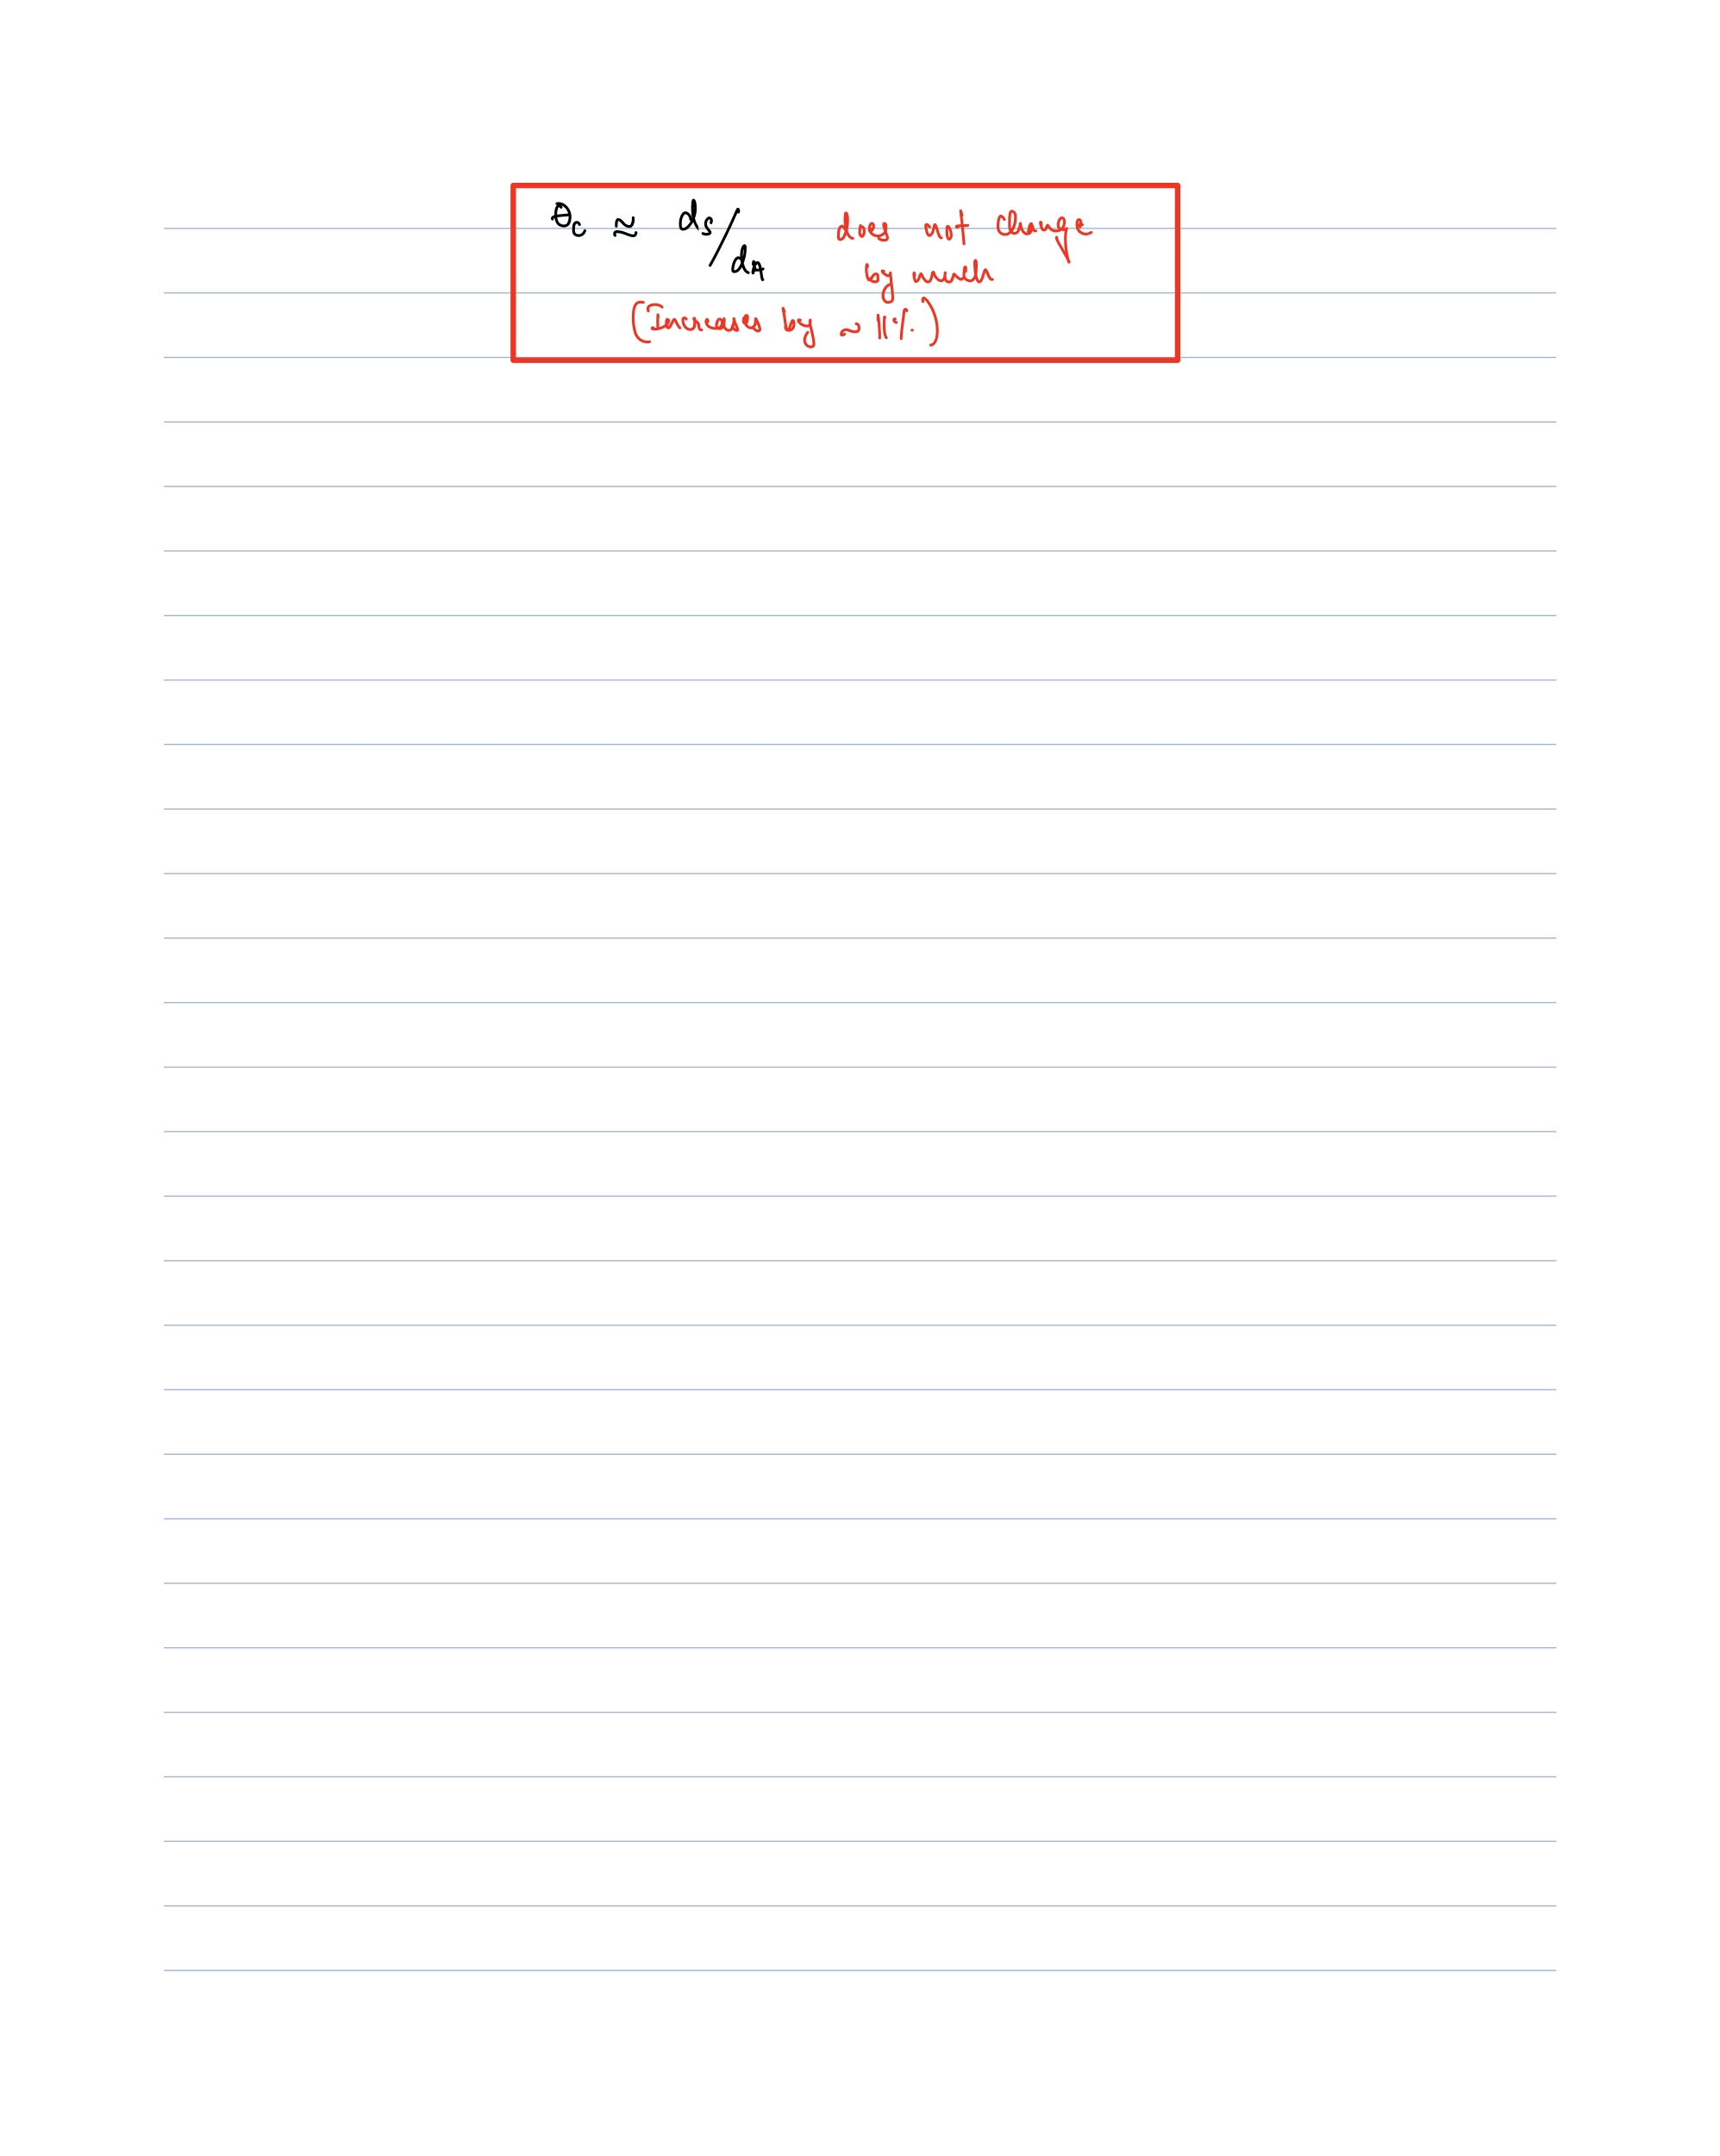 θc ≈ ds/dA does not change
by much
(Increases by ~ 11%)